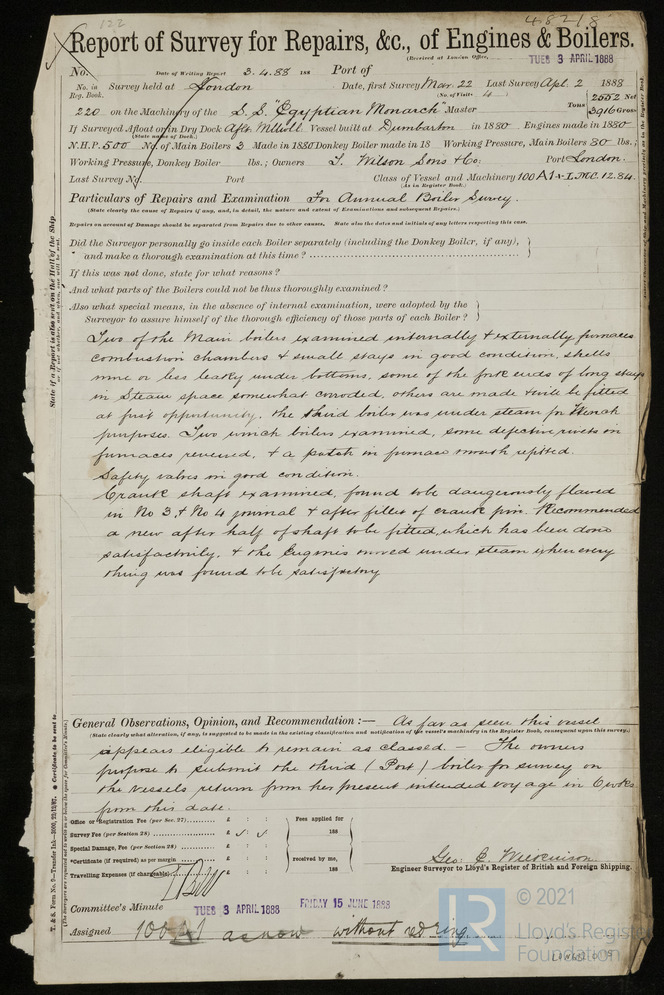 122
48218
Report of Survey for Repairs, &c., of Engines & Boilers.
(Received at London Office, TUES 3 APRIL 1888
No. Date of Writing Report 3.4.88 188 Port of
No. in Reg. Book. Survey held at London Date, first Survey Mar. 22 Last Survey Apl. 2 1888
(No. of Visits 4
220 on the Machinery of the S.S. "Egyptian Monarch" Master Tons 2552 Net 3916 Gross
If Surveyed Afloat or in Dry Dock Aflt. Vessel built at Dumbarton in 1880 Engines made in 1880
(State name of Dock.)
N.H.P. 500 No. of Main Boilers 3 Made in 1880 Donkey Boiler made in 18 Working Pressure, Main Boilers 80 lbs.;
Working Pressure, Donkey Boiler lbs.; Owners T. Wilson Sons & Co. Port London.
Last Survey No. Port Class of Vessel and Machinery 100 A1 & L.M.C. 12.84.
(As in Register Book.)
Particulars of Repairs and Examination For Annual Boiler Survey.
(State clearly the cause of Repairs if any, and, in detail, the nature and extent of Examinations and subsequent Repairs.)
Repairs on account of Damage should be separated from Repairs due to other causes. State also the dates and initials of any letters respecting this case.
Did the Surveyor personally go inside each Boiler separately (including the Donkey Boiler, if any),
and make a thorough examination at this time?
If this was not done, state for what reasons?
And what parts of the Boilers could not be thus thoroughly examined?
Also what special means, in the absence of internal examination, were adopted by the
Surveyor to assure himself of the thorough efficiency of those parts of each Boiler?
Two of the Main boilers examined internally & externally furnaces
combustion chambers & small stays in good condition, shells
more or less leaky under bottoms, some of the fork ends of long stays
in Steam space somewhat corroded, others are made & will be fitted
at first opportunity. the third boiler was under steam for Winch
purposes. Two winch boilers examined, some defective rivets in
furnaces renewed, & a patch in furnace mouth refitted.
Safety valves in good condition.
Crank shaft examined, found to be dangerously flawed
in No 3 & No 4 journal & after fillet of crank pin. Recommended
a new after half of shaft to be fitted, which has been done
satisfactorily. & the Engines moved under steam when every
thing was found to be satisfactory
General Observations, Opinion, and Recommendation:— As far as seen this vessel
(State clearly what alteration, if any, is suggested to be made in the existing classification and notification of the vessel's machinery in the Register Book, consequent upon this survey.)
appears eligible to remain as classed. — The owners
propose to submit the third (Port) boiler for survey on
the vessels return from her present intended voyage in 6 wks
from this date.
Office or Registration Fee (per Sec. 27) £ : : Fees applied for
Survey Fee (per Section 28) £ : : 188
Special Damage, Fee (per Section 28) £ : :
*Certificate (if required) as per margin £ : : received by me,
Travelling Expenses (if chargeable) £ : : 188
Geo. C. Wilkinson
Engineer Surveyor to Lloyd's Register of British and Foreign Shipping.
Committee's Minute TUES 3 APRIL 1888 FRIDAY 15 JUNE 1888
Assigned 100 A1 as now without red ring
State if a Report is also sent on the Hull of the Ship
© 2021
LR
Lloyd's Register
Foundation